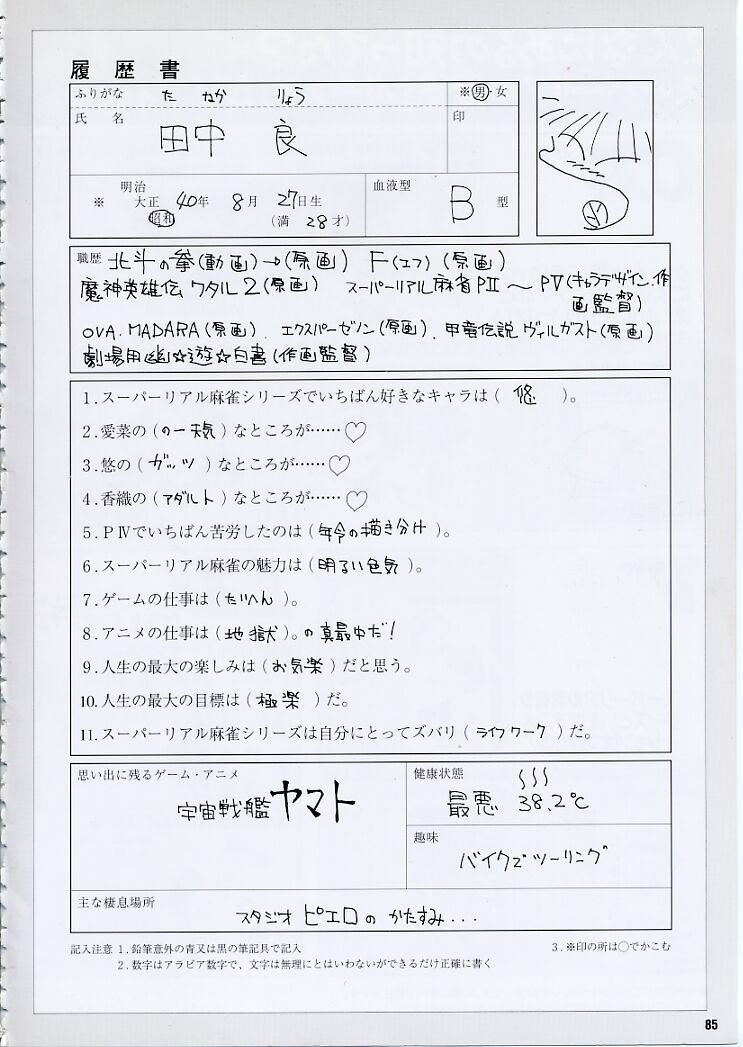 履歴書
ふりがな たなか りょう ※男・女
氏名 田中 良 印
※ 明治 大正 昭和 40年 8月 27日生 (満 28才) 血液型 B 型
職歴 北斗の拳(動画)→(原画) F(エフ)(原画)
魔神英雄伝 ワタル2(原画) スーパーリアル麻雀PⅡ〜PⅤ(キャラデザイン、作画監督)
OVA.MADARA(原画)、エクスパーゼノン(原画)、甲竜伝説 ヴィルガスト(原画)
劇場用幽☆遊☆白書(作画監督)
1.スーパーリアル麻雀シリーズでいちばん好きなキャラは( 悠 )。
2.愛菜の(のー天気)なところが……♡
3.悠の( ガッツ )なところが……♡
4.香織の(アダルト)なところが……♡
5.PⅣでいちばん苦労したのは(年令の描き分け)。
6.スーパーリアル麻雀の魅力は(明るい色気)。
7.ゲームの仕事は(たいへん)。
8.アニメの仕事は(地獄)。の真最中だ!
9.人生の最大の楽しみは(お気楽)だと思う。
10.人生の最大の目標は( 極楽 )だ。
11.スーパーリアル麻雀シリーズは自分にとってズバリ(ライフワーク)だ。
思い出に残るゲーム・アニメ
宇宙戦艦ヤマト
健康状態
最悪 38.2℃
趣味
バイクでツーリング
主な棲息場所
スタジオ ピエロの かたすみ...
記入注意 1.鉛筆意外の青又は黒の筆記具で記入 3.※印の所は○でかこむ
2.数字はアラビア数字で、文字は無理にとはいわないができるだけ正確に書く
85